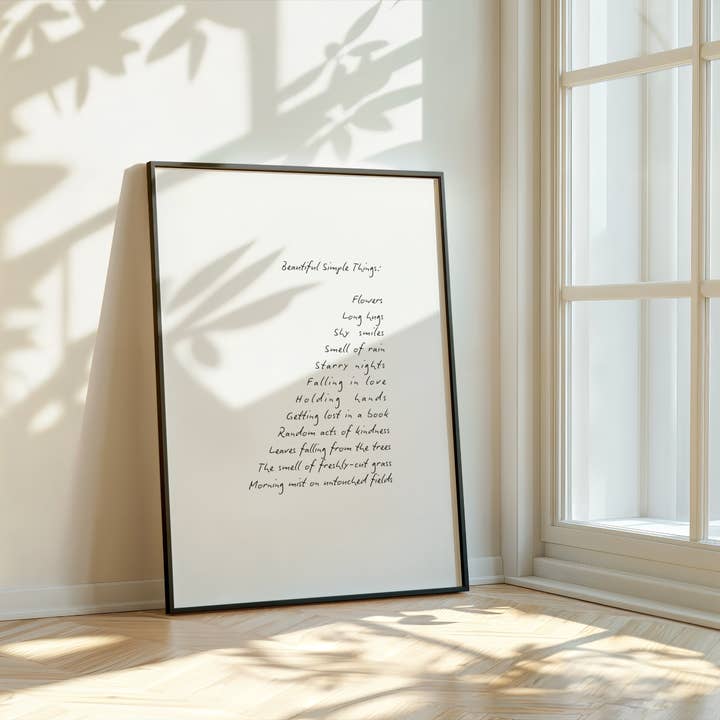 Beautiful Simple Things:
Flowers
Long hugs
Shy smiles
Smell of rain
Starry nights
Falling in love
Holding hands
Getting lost in a book
Random acts of kindness
Leaves falling from the trees
The smell of freshly-cut grass
Morning mist on untouched fields